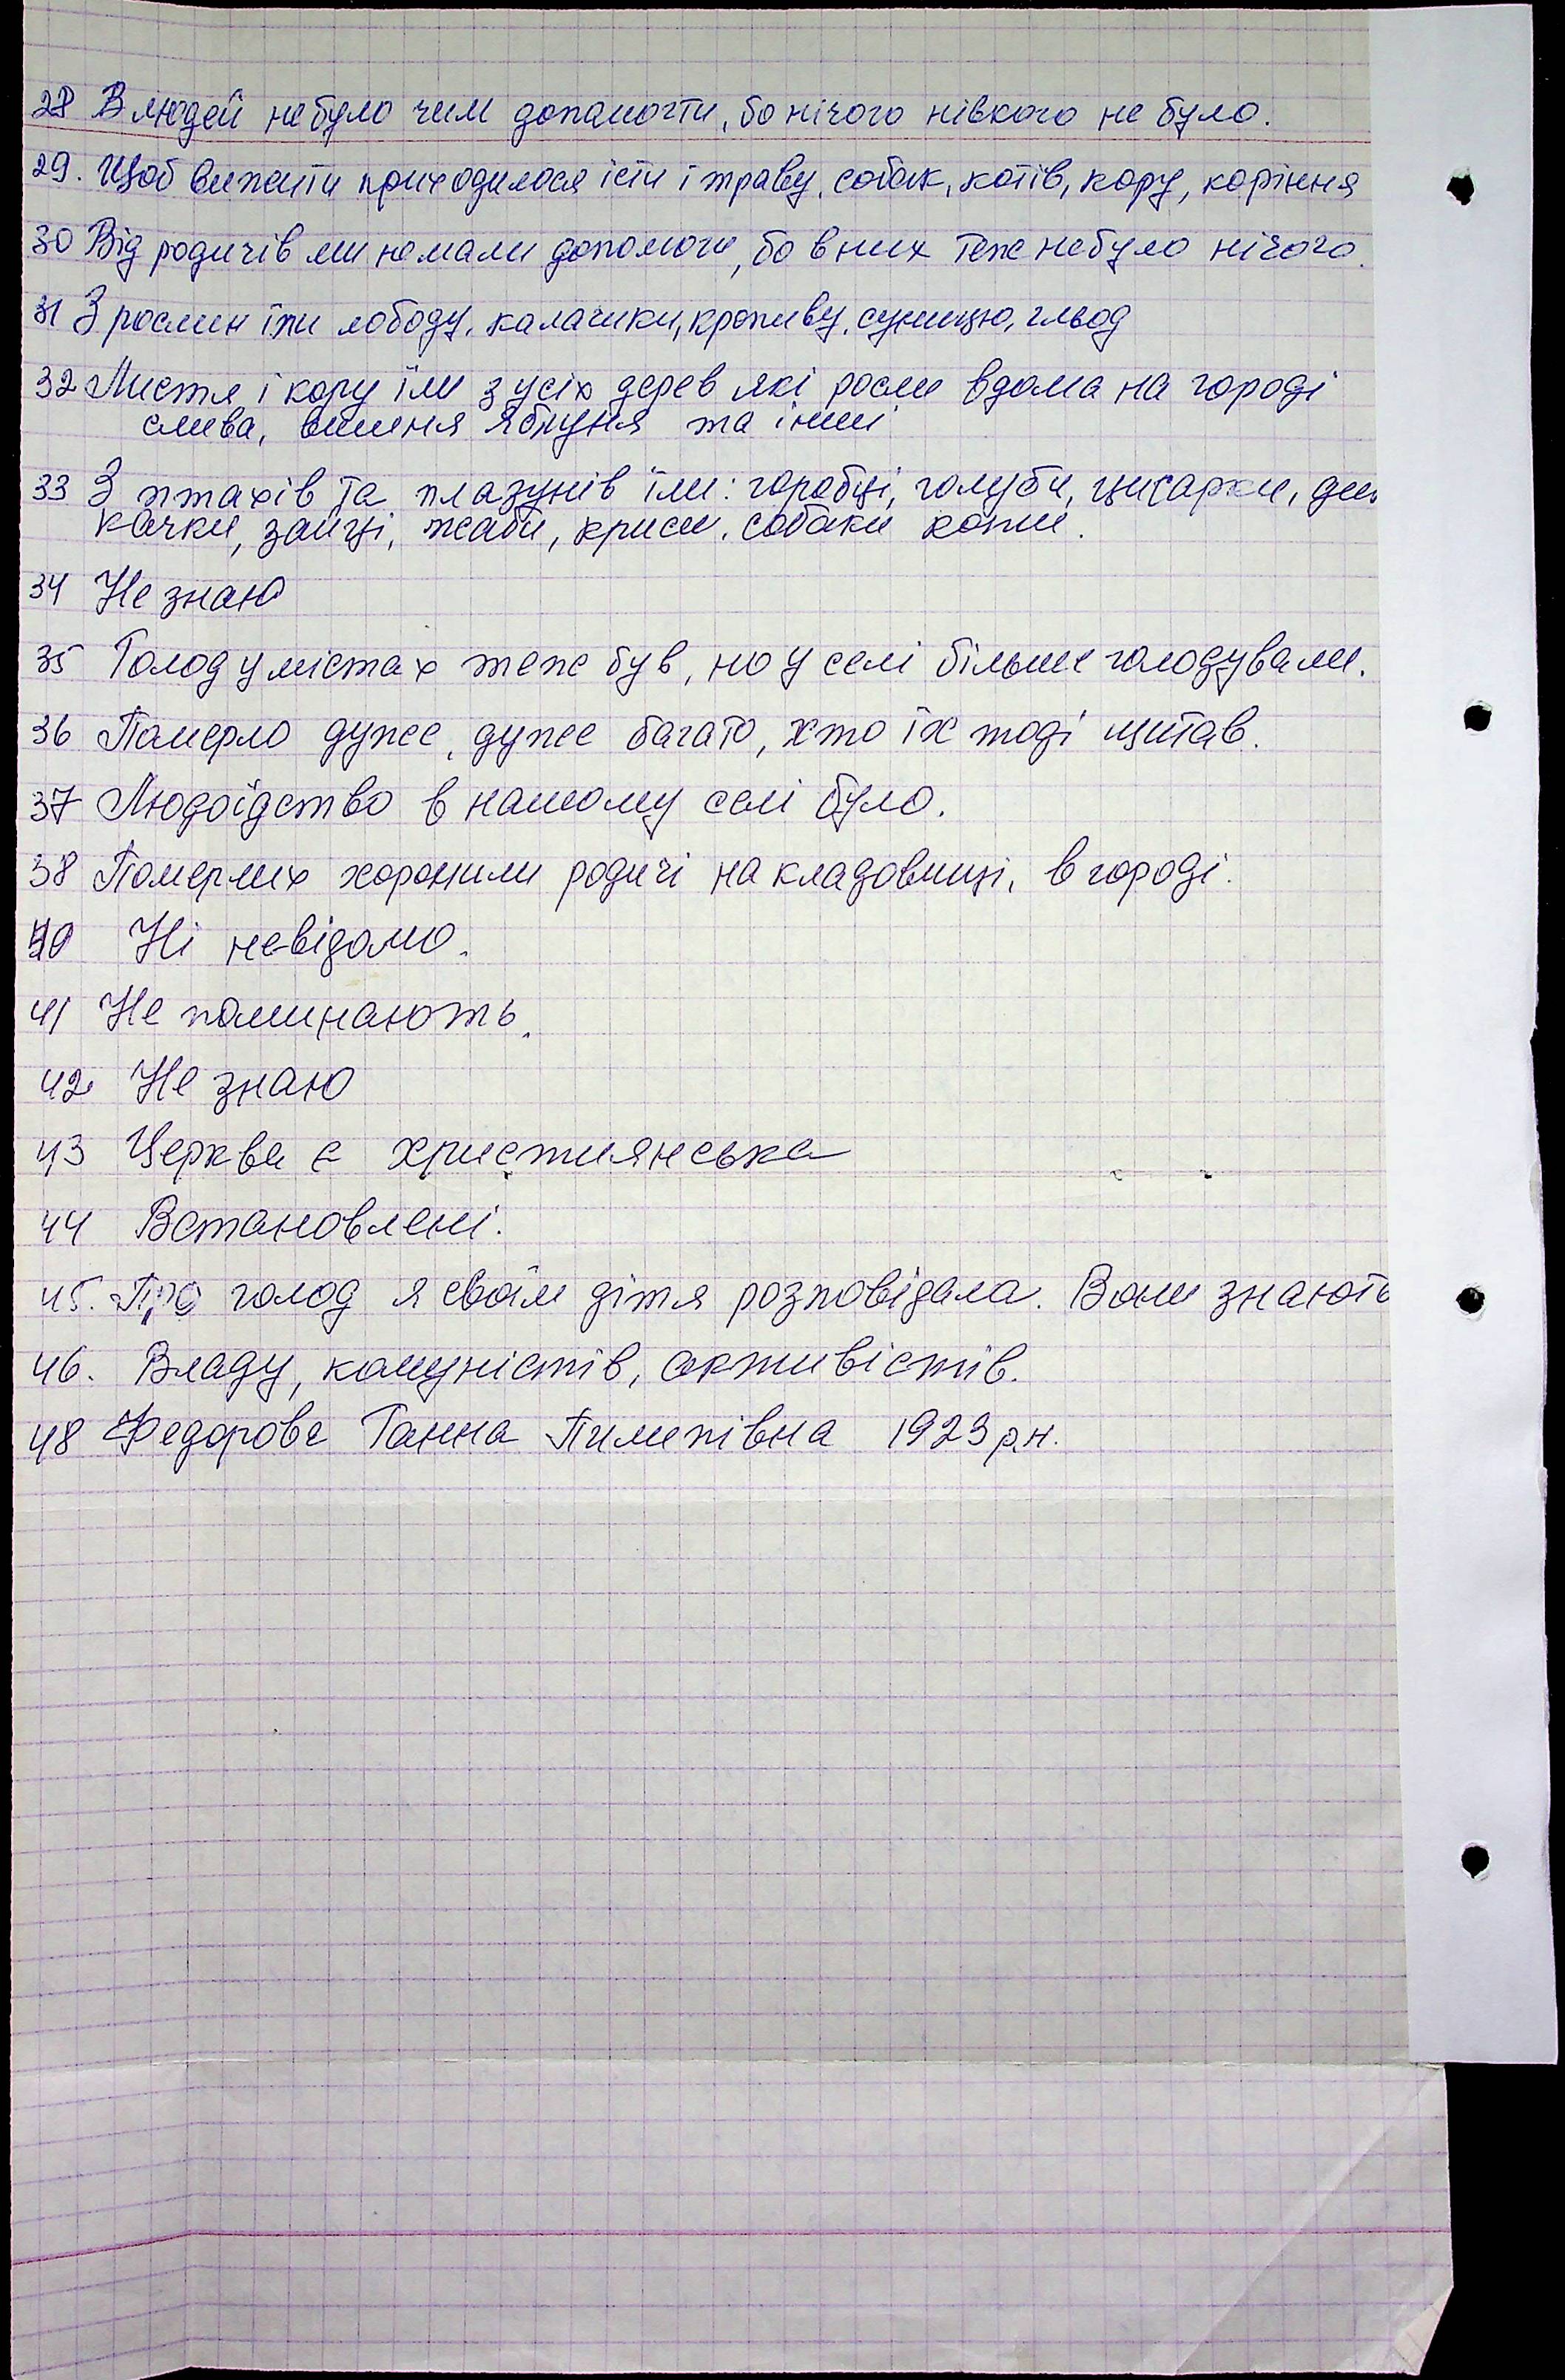 28 В людей не було чим допомогти, бо нічого нівкого не було.
29. Щоб вижити приходилося їсти і траву, собак, котів, кору, коріння
30 Від родичів ми немали допомоги, бо в них теж небуло нічого.
31 З рослин їли лободу, калачики, кропиву, суницю, гльод
32 Листя і кору їли з усіх дерев які росли вдома на городі
слива, вишня яблуня та інші
33 З птахів та плазунів їли: горобці, голуби, цисарки, дик
качки, зайці, жаби, криси, собаки коти.
34 Не знаю
35 Голод у містах теж був, но у селі більше голодували.
36 Померло дуже, дуже багато, хто їх тоді щитав.
37 Людоїдство в нашому селі було.
38 Померлих хоронили родичі на кладовищі, в городі.
40 Ні невідомо.
41 Не поминають.
42 Не знаю
43 Церква є християнська
44 Встановлені.
45. Про голод я своїм дітя розповідала. Вони знають
46. Владу, комуністів, активістів.
48 Федорова Ганна Пилипівна 1923 р.н.